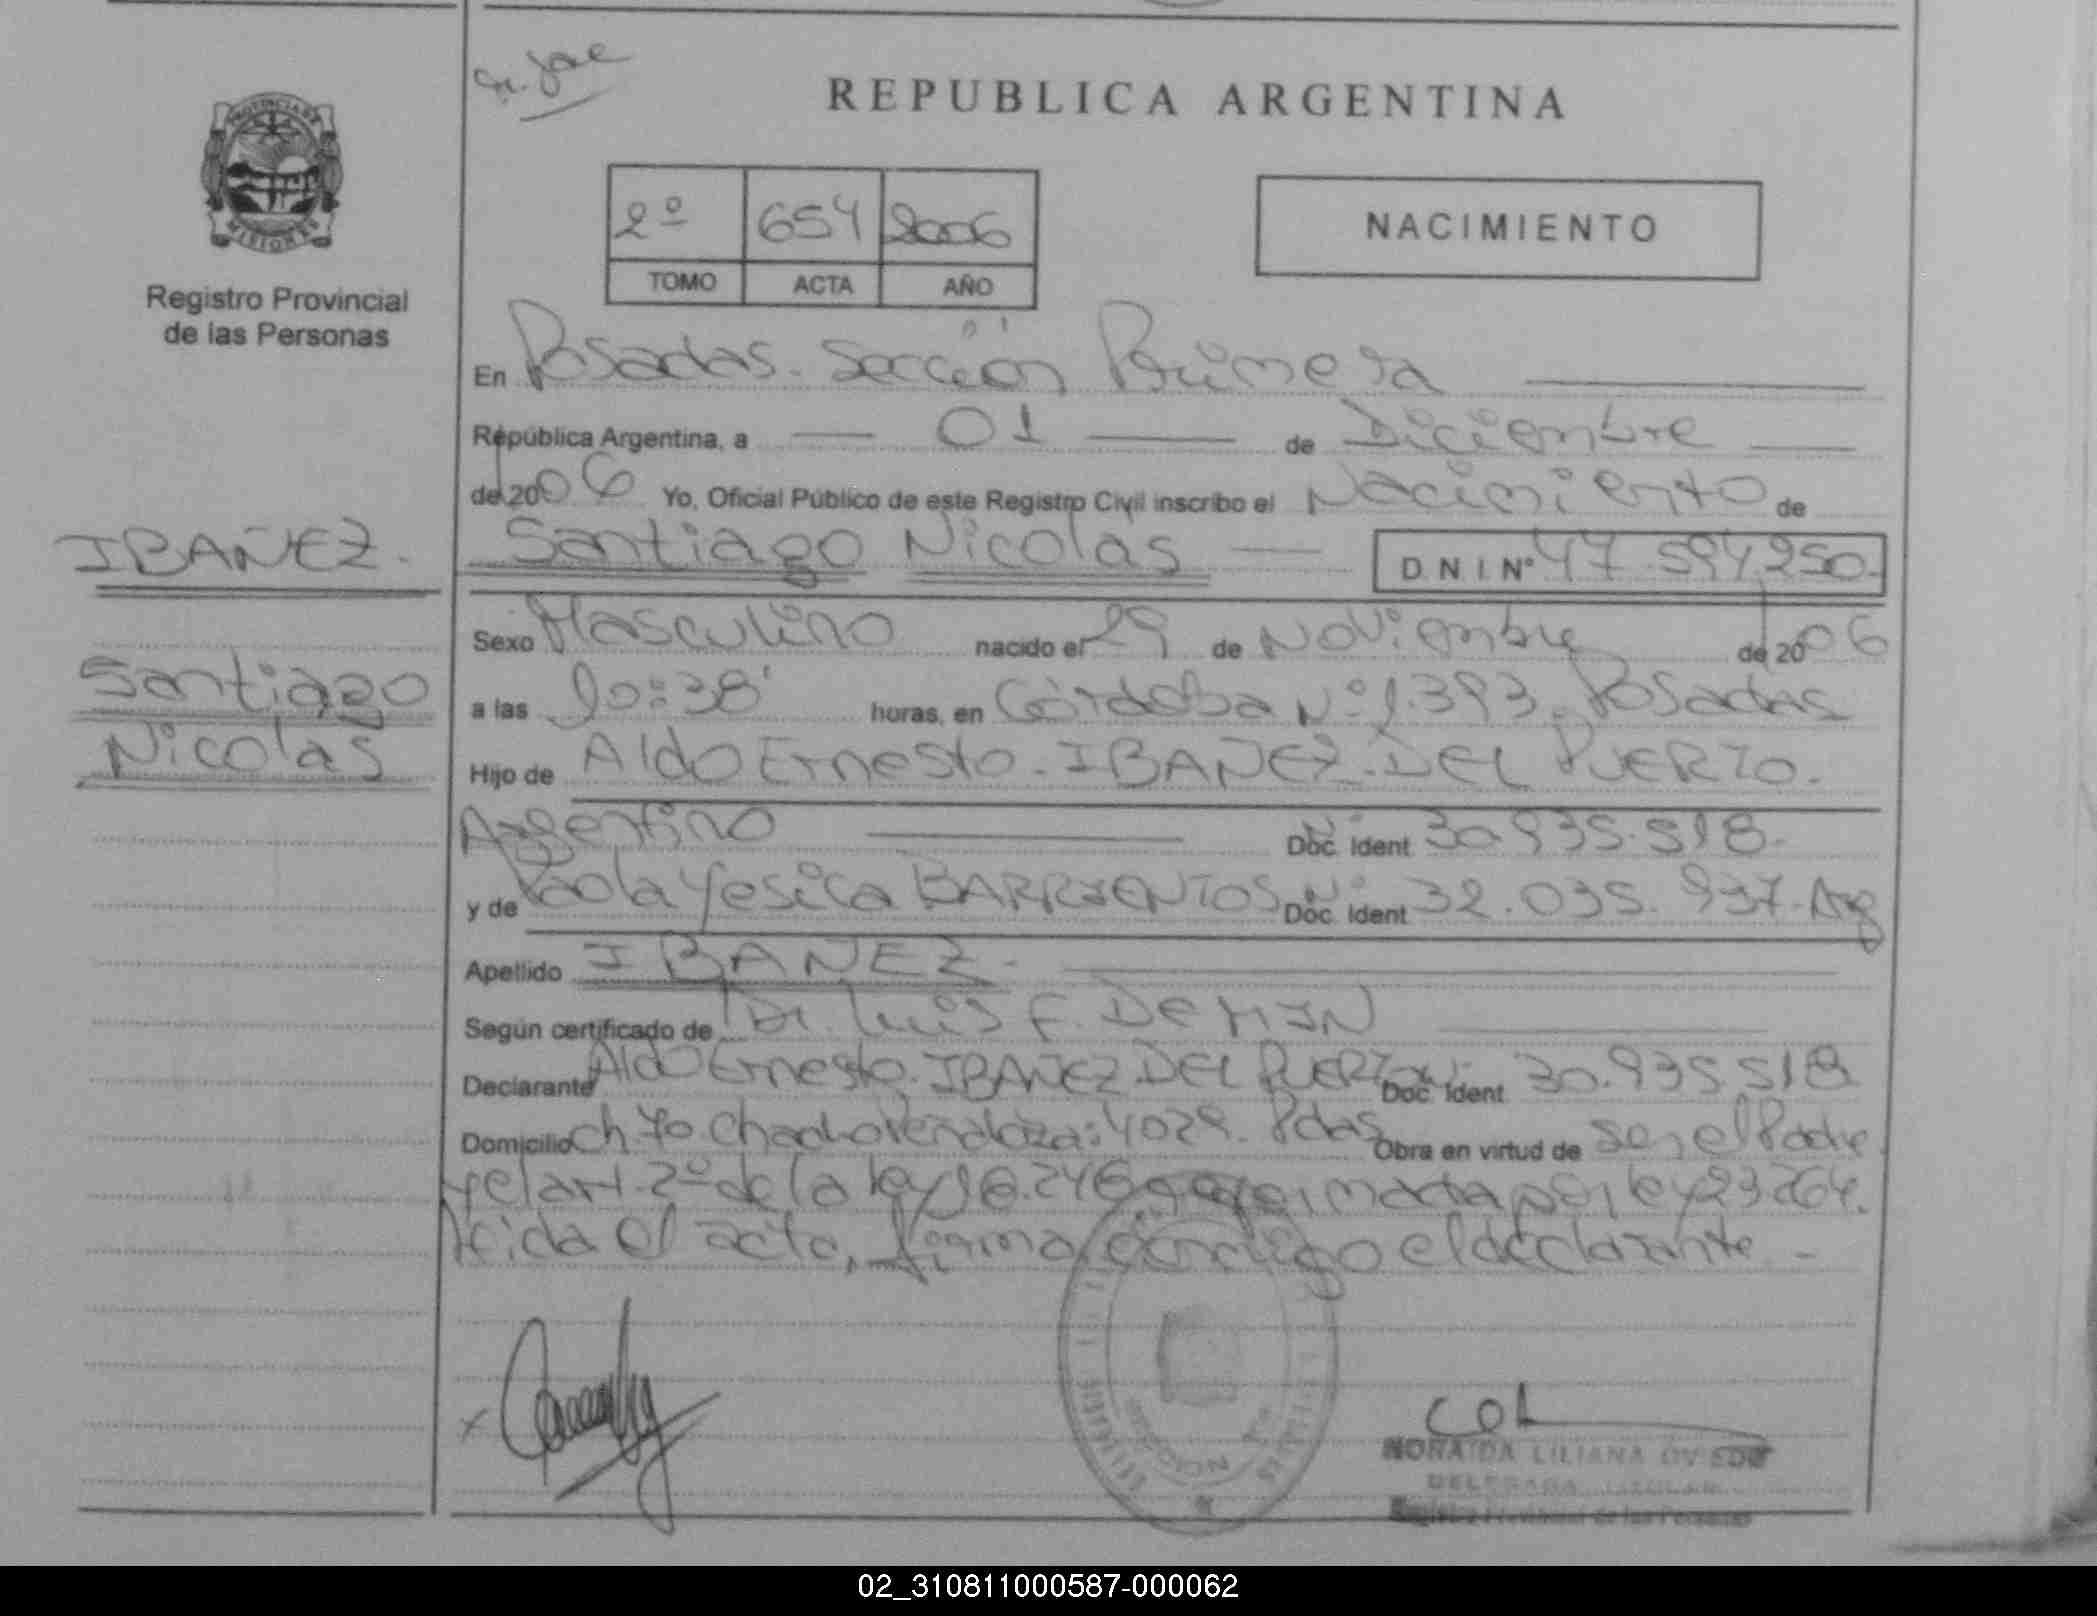 Sn. José
REPUBLICA ARGENTINA
PROVINCIA DE
MISIONES
Registro Provincial
de las Personas
2º 654 2006
TOMO ACTA AÑO
NACIMIENTO
En Posadas. Sección Primera
República Argentina, a 01 de Diciembre
de 2006 Yo, Oficial Público de este Registro Civil inscribo el Nacimiento de
IBAÑEZ.
Santiago Nicolás D N I Nº 47.594.250.
Sexo Masculino nacido el 29 de Noviembre de 2006
Santiago
Nicolás
a las 10:38' horas, en Córdoba Nº 1.393. Posadas
Hijo de Aldo Ernesto. IBAÑEZ. DEL PUERTO.
Argentino Doc. Ident Nº 30.935.518.
y de Paola Yesica BARRIENTOS Doc. Ident Nº 32.035.937. Arg
Apellido IBAÑEZ.
Según certificado de Dr. Luis F. DEMIN
Declarante Aldo Ernesto. IBAÑEZ. DEL PUERTO Doc. Ident 30.935.518
Domicilio Ch. 70. 4029. Pdas Obra en virtud de ser el Padre
y el art. 2º de la ley 18.248 por ley 23.264.
leída el acta, firma conmigo el declarante. -
x
NORAIDA LILIANA OVIEDO
DELEGADA TITULAR
Registro Provincial de las Personas
02_310811000587-000062